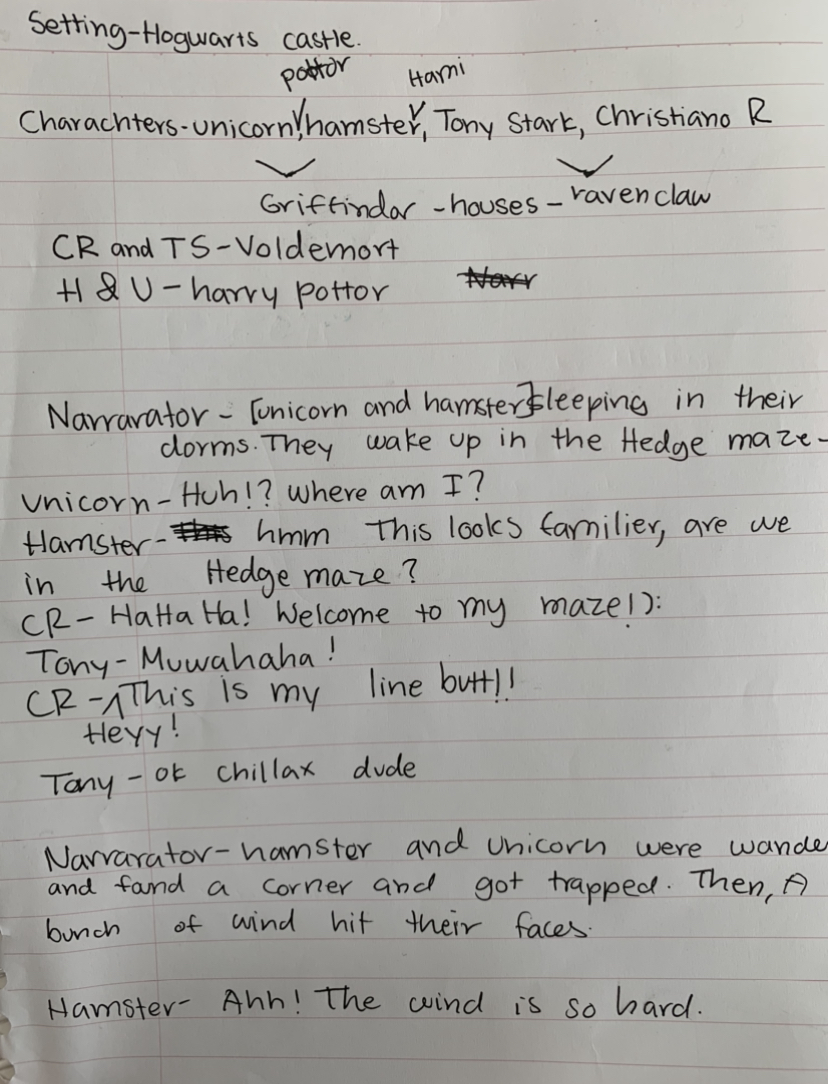 Setting-Hogwarts castle.
pottor Hami
Charachters-unicorn,hamster, Tony Stark, Christiano R
Griffindor -houses- ravenclaw
CR and TS-Voldemort
H & U-harry pottor
Narrarator- [unicorn and hamster] sleeping in their
dorms. They wake up in the Hedge maze-
Unicorn-Huh!? Where am I?
Hamster- hmm This looks familier, are we
in the Hedge maze?
CR- HaHa Ha! Welcome to my maze!):
Tony- Muwahaha!
CR -^This is my line butt!!
Heyy!
Tony- ok chillax dude
Narrarator-hamster and unicorn were wande
and fand a corner and got trapped. Then, A
bunch of wind hit their faces.
Hamster- Ahh! The wind is so hard.